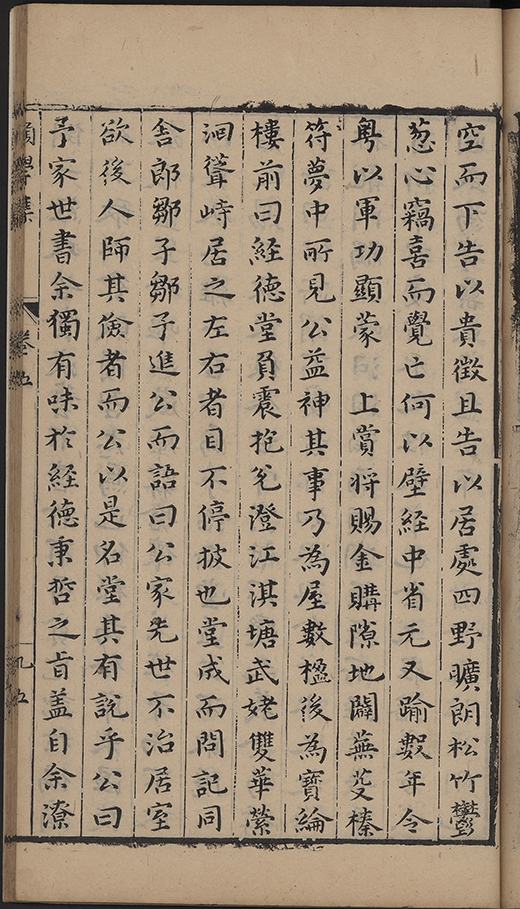 空而下告以貴徴且告以居處四野曠朗松竹鬱
葱心竊喜而覺亡何以壁經中省元又踰數年令
粤以軍功顯蒙　上賞將賜金購隙地闢蕪芟榛
符夢中所見公益神其事乃為屋數楹後為寳綸
樓前曰経德堂負震抱兊澄江淇塘武姥雙華縈
洄聳峙居之左右者目不停披也堂成而問記同
舎郎鄒子鄒子進公而語曰公家先世不治居室
欲後人師其儉者而公以是名堂其有說乎公曰
予家世書余獨有味於経德秉哲之㫖盖自余潦
學集
卷五